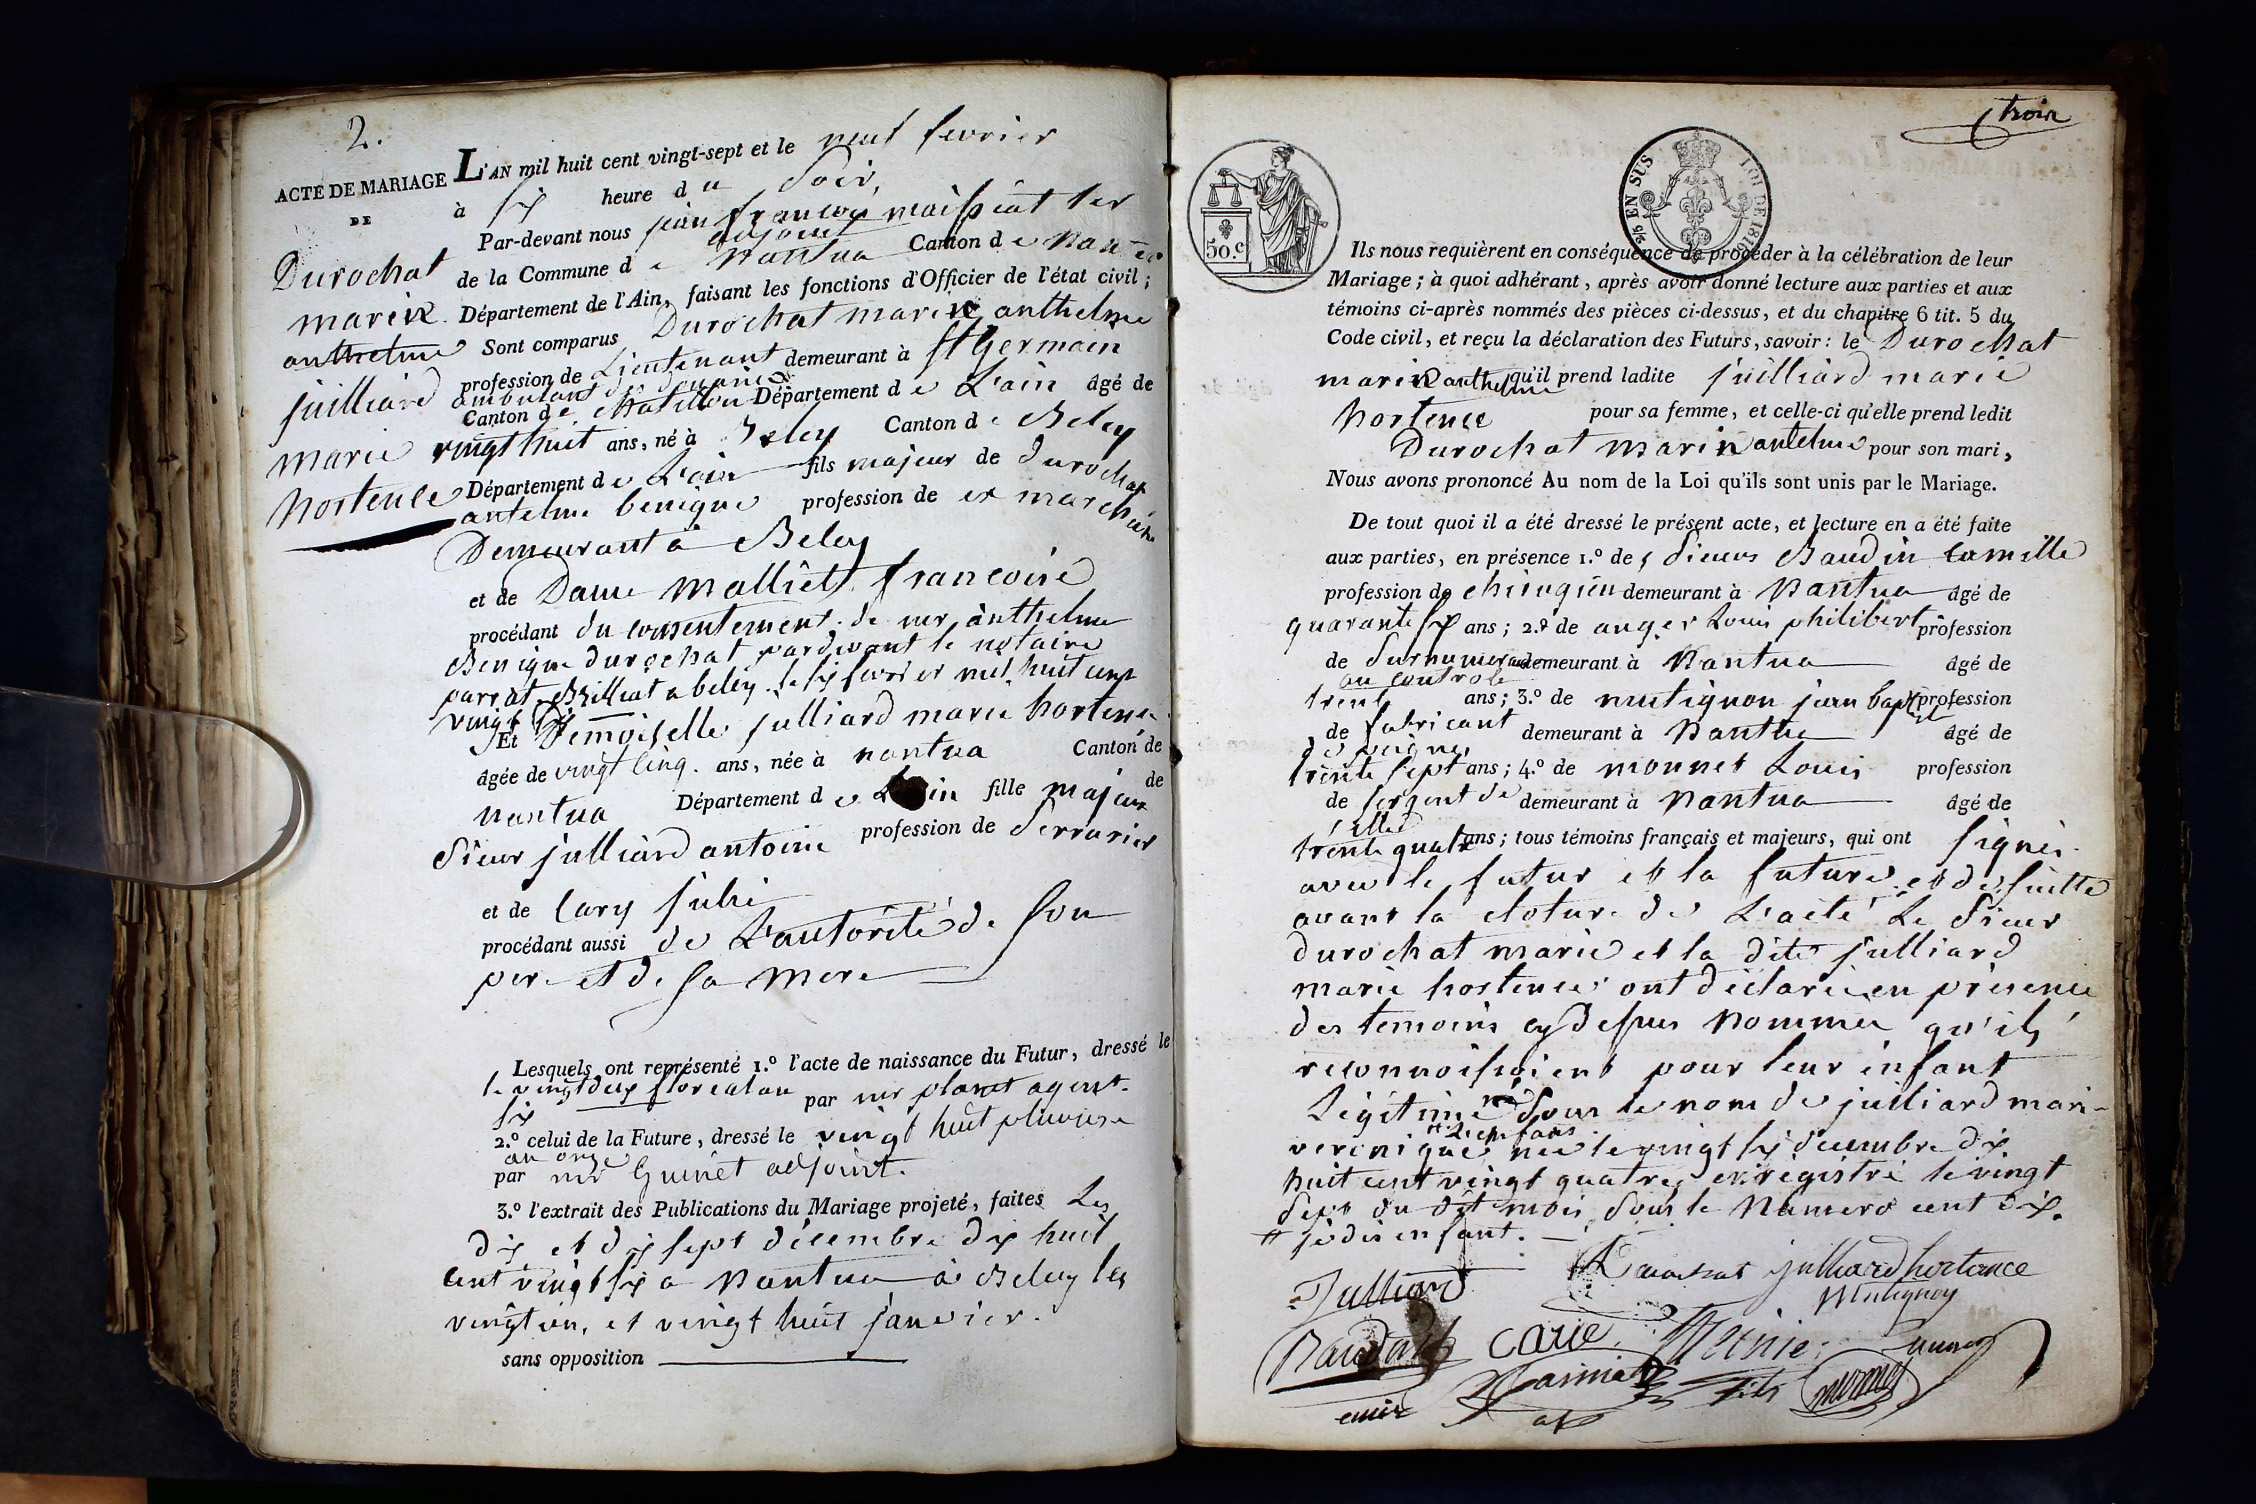 2.
ACTE DE MARIAGE
DE
Durochat
marin
anthelme
juilliard
marie
hortence
L'AN mil huit cent vingt-sept et le neuf fevrier
à six heure du Soir,
Par-devant nous jean françois maissiat 1er
adjoint
de la Commune de Nantua Canton de Nantua
Département de l'Ain, faisant les fonctions d'Officier de l'état civil;
Sont comparus Durochat marin anthelme
profession de Lieutenant demeurant à St Germain
ambulant des douanes
Canton de chatillon Département de L'ain âgé de
vingt huit ans, né à Beley Canton de Beley
Département de L'ain fils majeur de durochat
antelme benigne profession de ex marchand
Demeurant à Beley
et de Dame Malliet francoise
procédant du consentement de mr anthelme
Benigne durochat pardevant le notaire
parrat Brillat a beley le six fevrier mil huit cent
vingt sept
Et Demoiselle julliard marie hortence
âgée de vingt cinq ans, née à nantua Canton de
nantua Département de L'ain fille majeur de
Sieur julliard antoine profession de Serrurier
et de Cary julie
procédant aussi de L'autorité de Son
per et de Sa Mere
Lesquels ont représenté 1.º l'acte de naissance du Futur, dressé le
le vingt deux floreal an par mr planet agent
six
2.º celui de la Future, dressé le vingt huit pluviose
an onze
par mr Guinet adjoint.
3.º l'extrait des Publications du Mariage projeté, faites Les
dix et dix sept décembre dix huit
cent vingt six a Nantua à Beley les
vingt un, et vingt huit janvier.
sans opposition
trois
50.c
EN SUS
LOI DE 1816
Ils nous requièrent en conséquence de procéder à la célébration de leur
Mariage; à quoi adhérant, après avoir donné lecture aux parties et aux
témoins ci-après nommés des pièces ci-dessus, et du chapitre 6 tit. 5 du
Code civil, et reçu la déclaration des Futurs, savoir: le Durochat
marin anthelme qu'il prend ladite juilliard marie
hortence pour sa femme, et celle-ci qu'elle prend ledit
Durochat marin antelme pour son mari,
Nous avons prononcé Au nom de la Loi qu'ils sont unis par le Mariage.
De tout quoi il a été dressé le présent acte, et lecture en a été faite
aux parties, en présence 1.º des Sieurs Baudin Camille
profession de chirugien demeurant à Nantua âgé de
quarante six ans; 2.º de anger Louis philibert profession
de Surnumeraire demeurant à Nantua âgé de
au controle
trent ans; 3.º de mutignon jean baptiste profession
de fabricant demeurant à Nantua âgé de
de peignes
trente sept ans; 4.º de monnet Louis profession
de sergent de demeurant à Nantua âgé de
ville
trente quatre ans; tous témoins français et majeurs, qui ont signés
avec le futur et la future et de suitte
avant la cloture de L'acte Le Sieur
durochat marin et la dite julliard
marie hortence ont déclaré en présence
des temoins cy dessus Nommés qu'ils
reconnoissoient pour leur enfant
Légitime né Sous le nom de juilliard marie
veronique née le vingt six decembre dix
huit cent vingt quatre, enregistré le vingt
Sept du dit mois Sous le Numero cent dix.
# je dis enfant.
Julliard
Durochat julliard hortance
Mutignon
Baudin
Carie
monnet